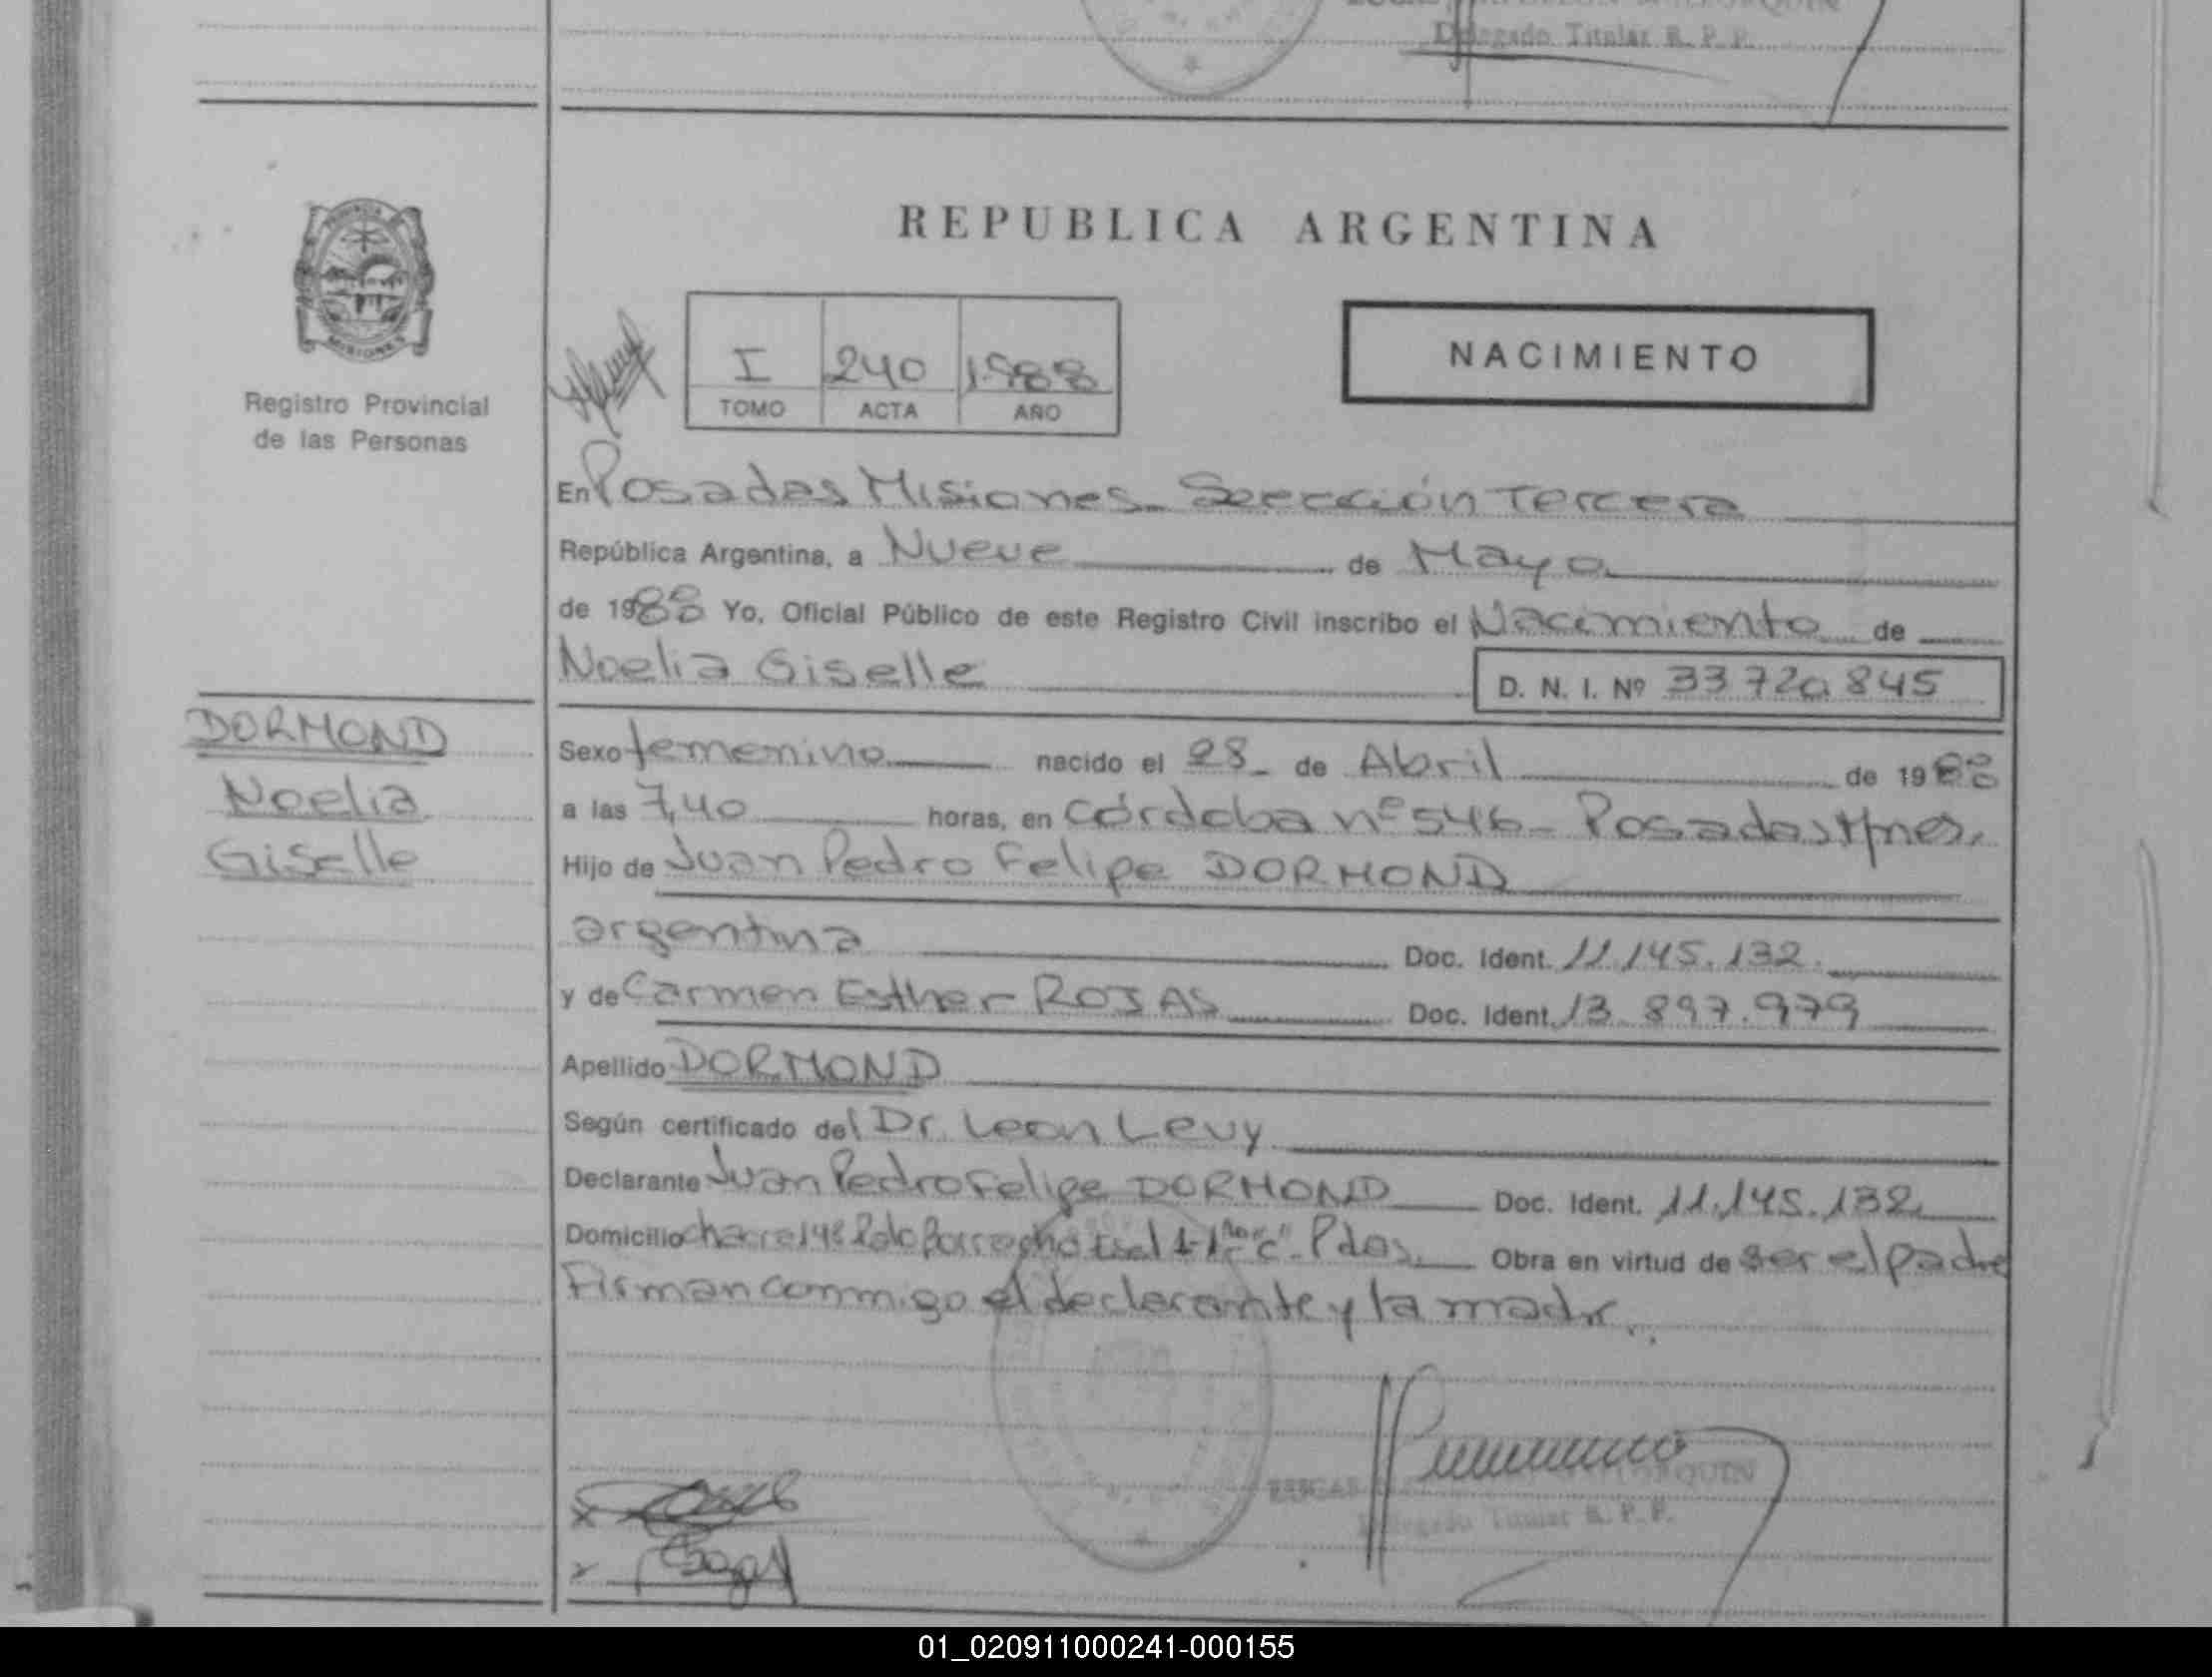 Delegado Titular R. P. P.
PROVINCIA
MISIONES
Registro Provincial
de las Personas
REPUBLICA ARGENTINA
I 240 1988
TOMO ACTA AÑO
NACIMIENTO
En Posadas Misiones - Sección Tercera
República Argentina, a Nueve de Mayo
de 1988 Yo, Oficial Público de este Registro Civil inscribo el Nacimiento de
Noelia Giselle
D. N. I. Nº 33 720 845
DORMOND
Noelia
Giselle
Sexo femenino nacido el 28 - de Abril de 1988
a las 7,40 horas, en Córdoba nº 546 - Posadas Mnes.
Hijo de Juan Pedro Felipe DORMOND
argentina Doc. Ident. 11.145.132.
y de Carmen Esther ROJAS Doc. Ident. 13.897.979
Apellido DORMOND
Según certificado del Dr. Leon Levy
Declarante Juan Pedro Felipe DORMOND Doc. Ident. 11.145.132
Domicilio chacra 148 "C" - Pdas. Obra en virtud de ser el padre
Firman conmigo el declarante y la madre.
Delegado Titular R. P. P.
01_020911000241-000155